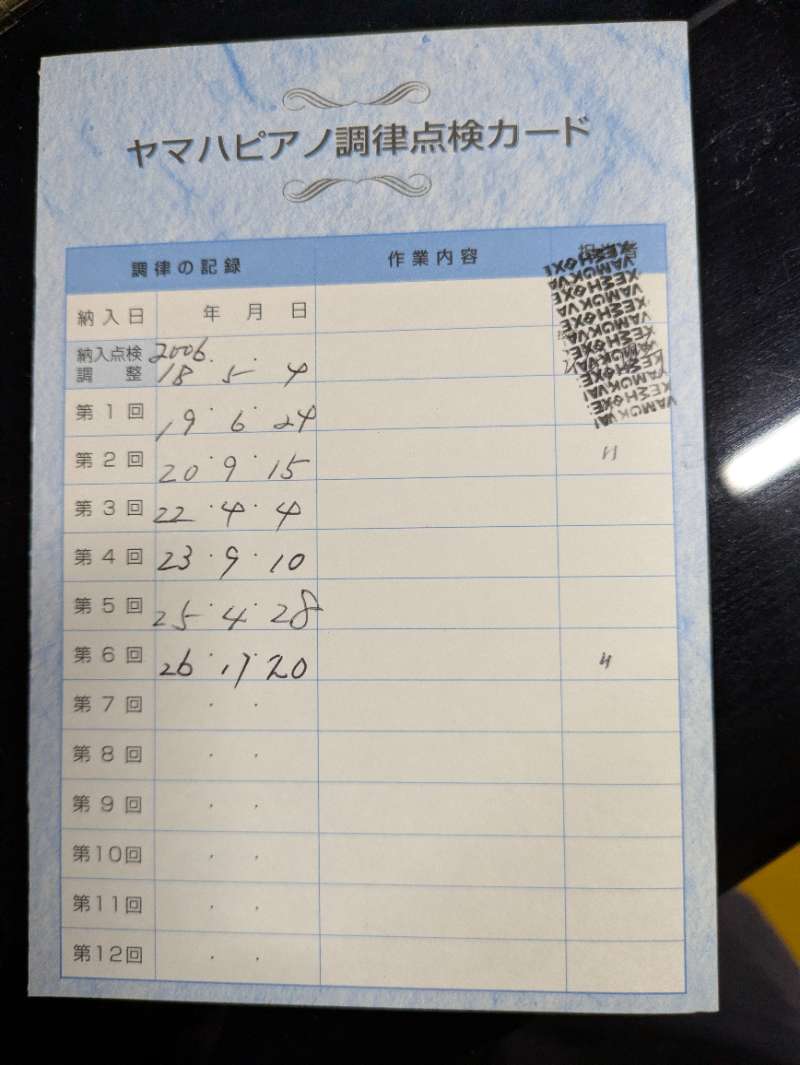 ヤマハピアノ調律点検カード
調律の記録 作業内容 担当者
納入日 年 月 日
納入点検調整 2006. 18 5 4
第1回 19・6・24
第2回 20・9・15 〃
第3回 22・4・4
第4回 23・9・10
第5回 25・4・28
第6回 26・・20 〃
第7回 ・ ・
第8回 ・ ・
第9回 ・ ・
第10回 ・ ・
第11回 ・ ・
第12回 ・ ・